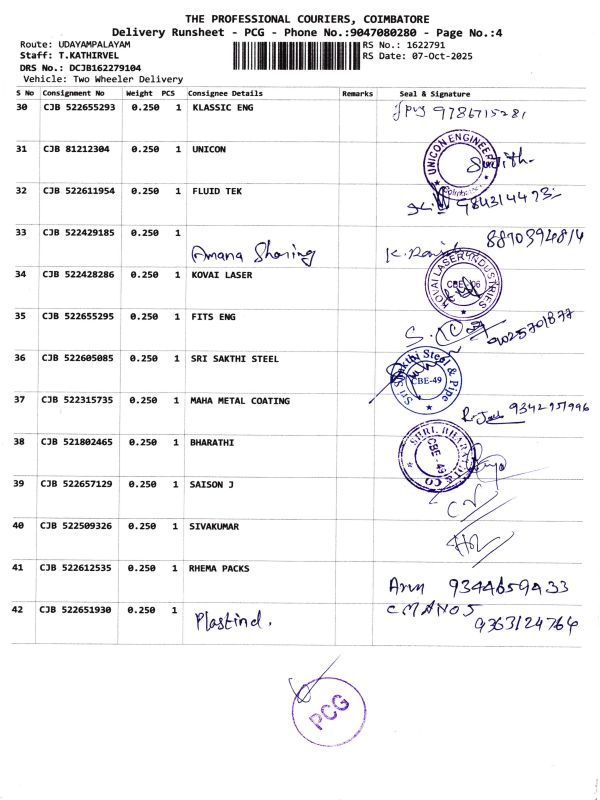 THE PROFESSIONAL COURIERS, COIMBATORE
Delivery Runsheet - PCG - Phone No.:9047080280 - Page No.:4
Route: UDAYAMPALAYAM RS No.: 1622791
Staff: T.KATHIRVEL RS Date: 07-Oct-2025
DRS No.: DCJB162279104
Vehicle: Two Wheeler Delivery
S No Consignment No Weight PCS Consignee Details Remarks Seal & Signature
30 CJB 522655293 0.250 1 KLASSIC ENG 9786715281
31 CJB 81212304 0.250 1 UNICON UNICON ENGINEER Coimbatore
32 CJB 522611954 0.250 1 FLUID TEK 984314493
33 CJB 522429185 0.250 1 Amana Sharing 8870394814
34 CJB 522428286 0.250 1 KOVAI LASER KOVAI LASER INDUSTRIES
35 CJB 522655295 0.250 1 FITS ENG 9025701877
36 CJB 522605085 0.250 1 SRI SAKTHI STEEL Sri Sakthi Steel & Pipe CBE-49
37 CJB 522315735 0.250 1 MAHA METAL COATING
38 CJB 521802465 0.250 1 BHARATHI SHRI. BHARATHI & CO CBE-49
39 CJB 522657129 0.250 1 SAISON J
40 CJB 522509326 0.250 1 SIVAKUMAR
41 CJB 522612535 0.250 1 RHEMA PACKS Arun 9344659433
42 CJB 522651930 0.250 1 Plastind. C MANOJ 9363124764
PCG